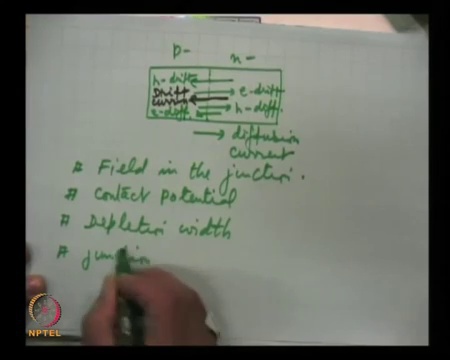 p- n-
h-drift
Drift e-drift
current h-diff.
e-diff.
diffusion
current
# Field in the junction.
# Contact Potential
# Depletion width
# junction
NPTEL